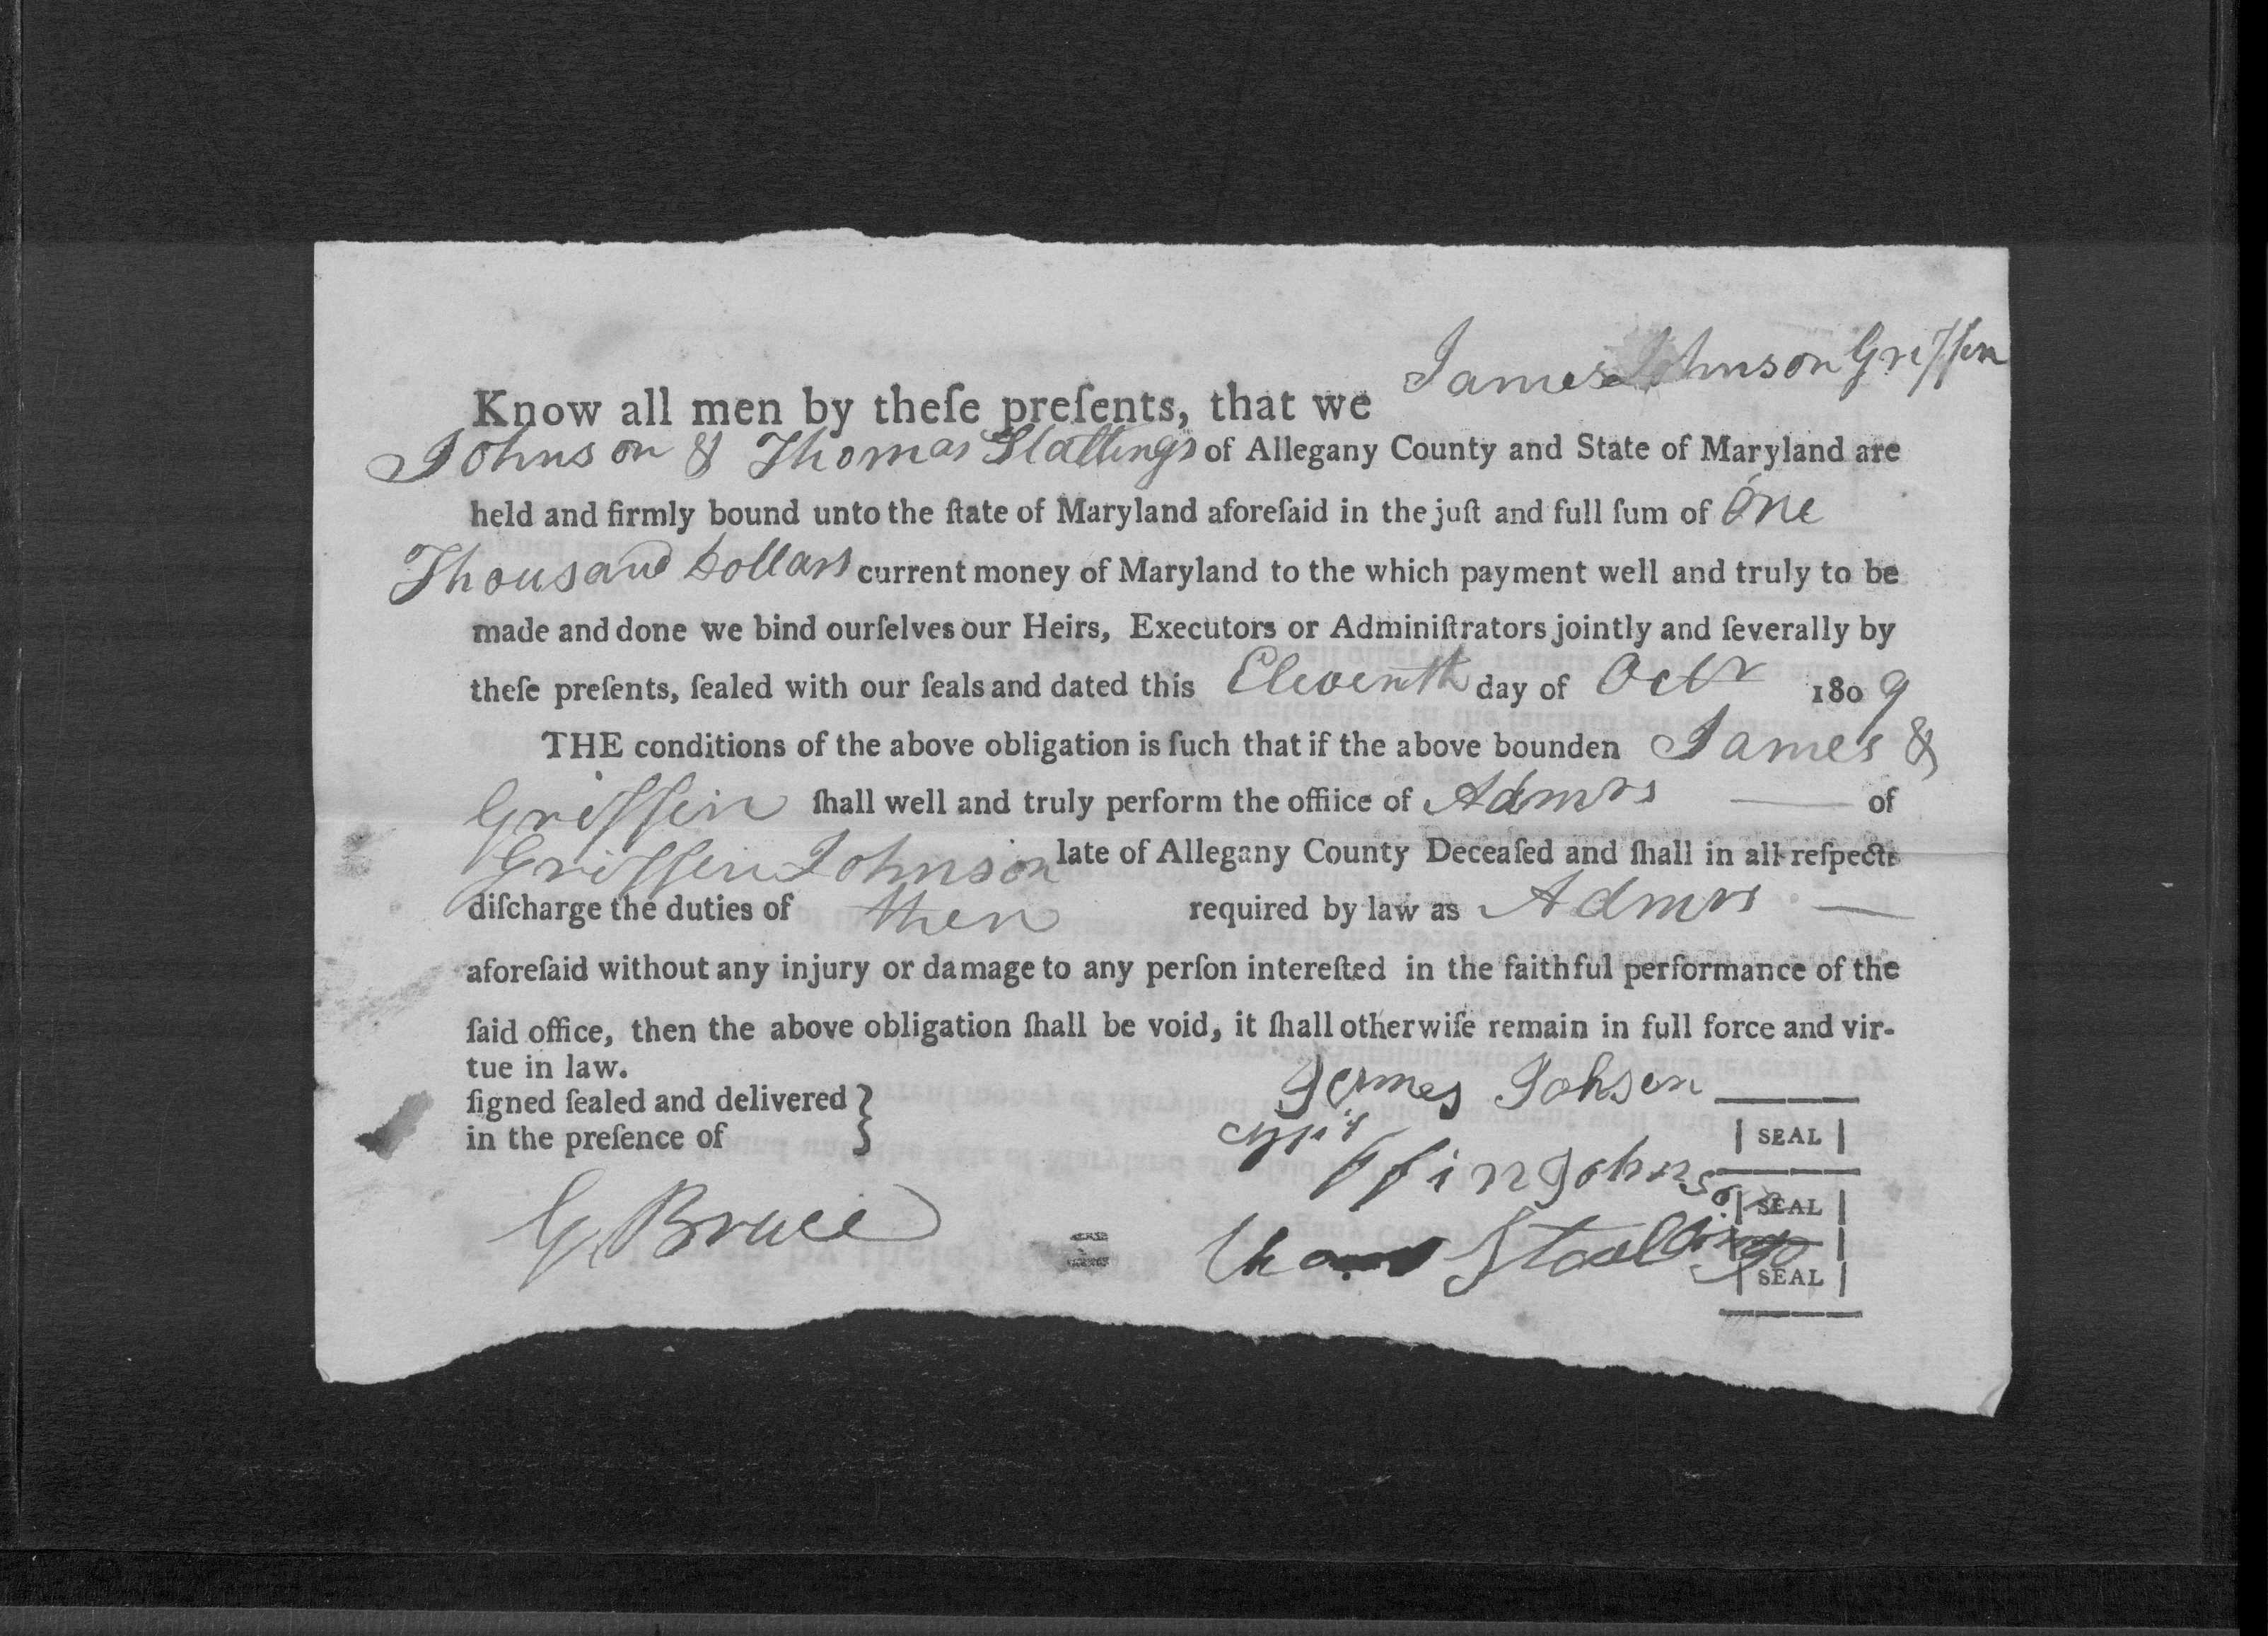 James Johnson Griffin
Know all men by theſe preſents, that we
Johnson & Thomas Stallings of Allegany County and State of Maryland are
held and firmly bound unto the ſtate of Maryland aforeſaid in the juſt and full ſum of One
Thousand Dollars current money of Maryland to the which payment well and truly to be
made and done we bind ourſelves our Heirs, Executors or Adminiſtrators jointly and ſeverally by
theſe preſents, ſealed with our ſeals and dated this Eleventh day of Octr 1809
THE conditions of the above obligation is ſuch that if the above bounden James &
Griffin ſhall well and truly perform the offiice of Admrs — of
Griffin Johnson late of Allegany County Deceaſed and ſhall in all reſpects
diſcharge the duties of them required by law as Admrs —
aforeſaid without any injury or damage to any perſon intereſted in the faithful performance of the
ſaid office, then the above obligation ſhall be void, it ſhall otherwiſe remain in full force and vir-
tue in law.
ſigned ſealed and delivered }
in the preſence of
James Johsen
SEAL
ffin Johnson
SEAL
G. Bruce
Stallings
SEAL